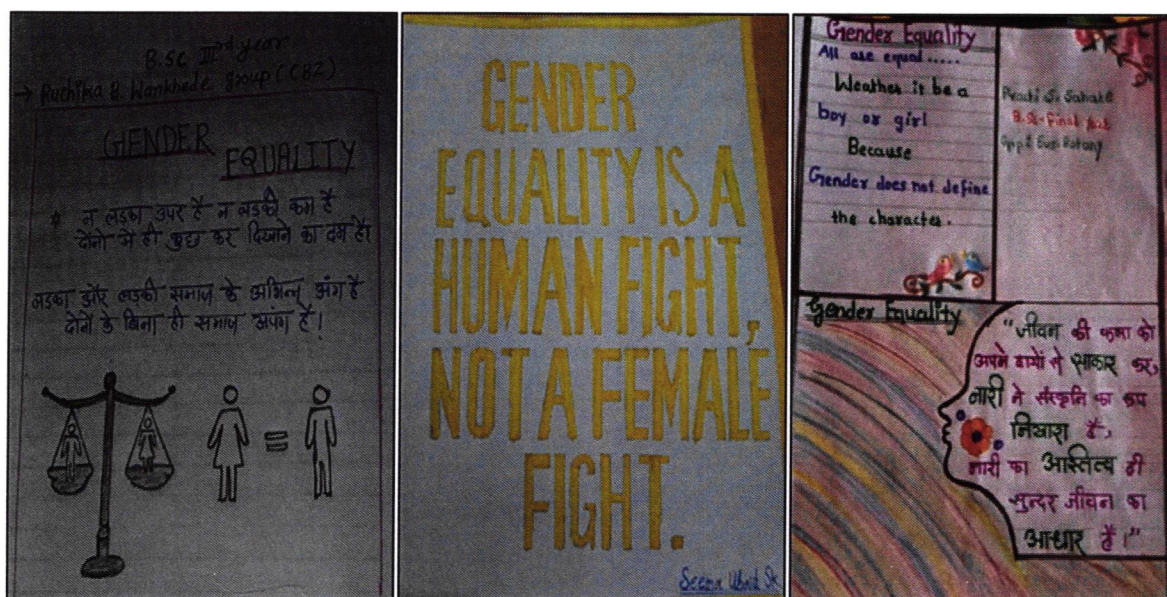 B.Sc IIIrd year
→ Ruchika B. Wankhede group (CBZ)
GENDER
EQUALITY
* न लडका उपर है न लडकी कम है
दोनो मे ही कुछ कर दिखाने का दम है।
लडका और लडकी समाज के अभिन्न अंग है
दोनों के बिना ही समाज अपंग है।
=
GENDER
EQUALITY IS A
HUMAN FIGHT,
NOT A FEMALE
FIGHT.
Seema
Gender Equality
All are equal.....
Weather it be a
boy or girl
Because
Gender does not define
the character.
S. Sahare
B.Sc-Final
Botany
Gender Equality
"जीवन की कला को
अपने हाथों से साकार कर,
नारी ने संस्कृति का रूप
निखारा है,
नारी का अस्तित्व ही
सुन्दर जीवन का
आधार है।"